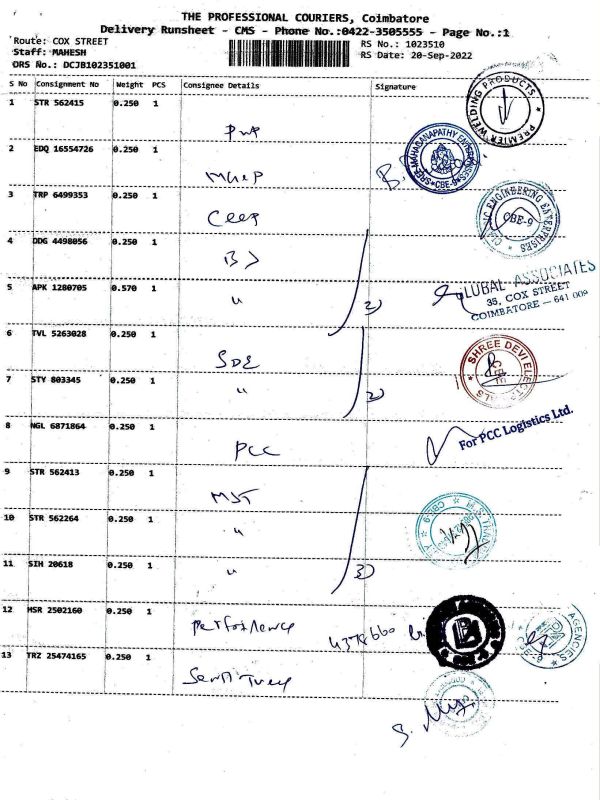 THE PROFESSIONAL COURIERS, Coimbatore
Delivery Runsheet - CMS - Phone No.:0422-3505555 - Page No.:1
Route: COX STREET
Staff: MAHESH
DRS No.: DCJB102351001
RS No.: 1023510
RS Date: 20-Sep-2022
S No Consignment No Weight PCS Consignee Details Signature
1 STR 562415 0.250 1
PREMIER WELDING PRODUCTS
2 EDQ 16554726 0.250 1
SREE MAHAGANAPATHY
CBE-9
3 TRP 6499353 0.250 1
ENGINEERING ENTERPRISES
CBE-9
4 DDG 4498056 0.250 1
5 APK 1280705 0.570 1 "
2)
GLOBAL ASSOCIATES
35, COX STREET
COIMBATORE - 641 009
6 TVL 5263028 0.250 1
SHREE DEVI
CBE
7 STY 803345 0.250 1 "
2)
8 NGL 6871864 0.250 1
PCC
For PCC Logistics Ltd.
9 STR 562413 0.250 1
MST
10 STR 562264 0.250 1 "
11 SIH 20618 0.250 1 "
3)
12 MSR 2502160 0.250 1
AGENCIES
13 TRZ 25474165 0.250 1